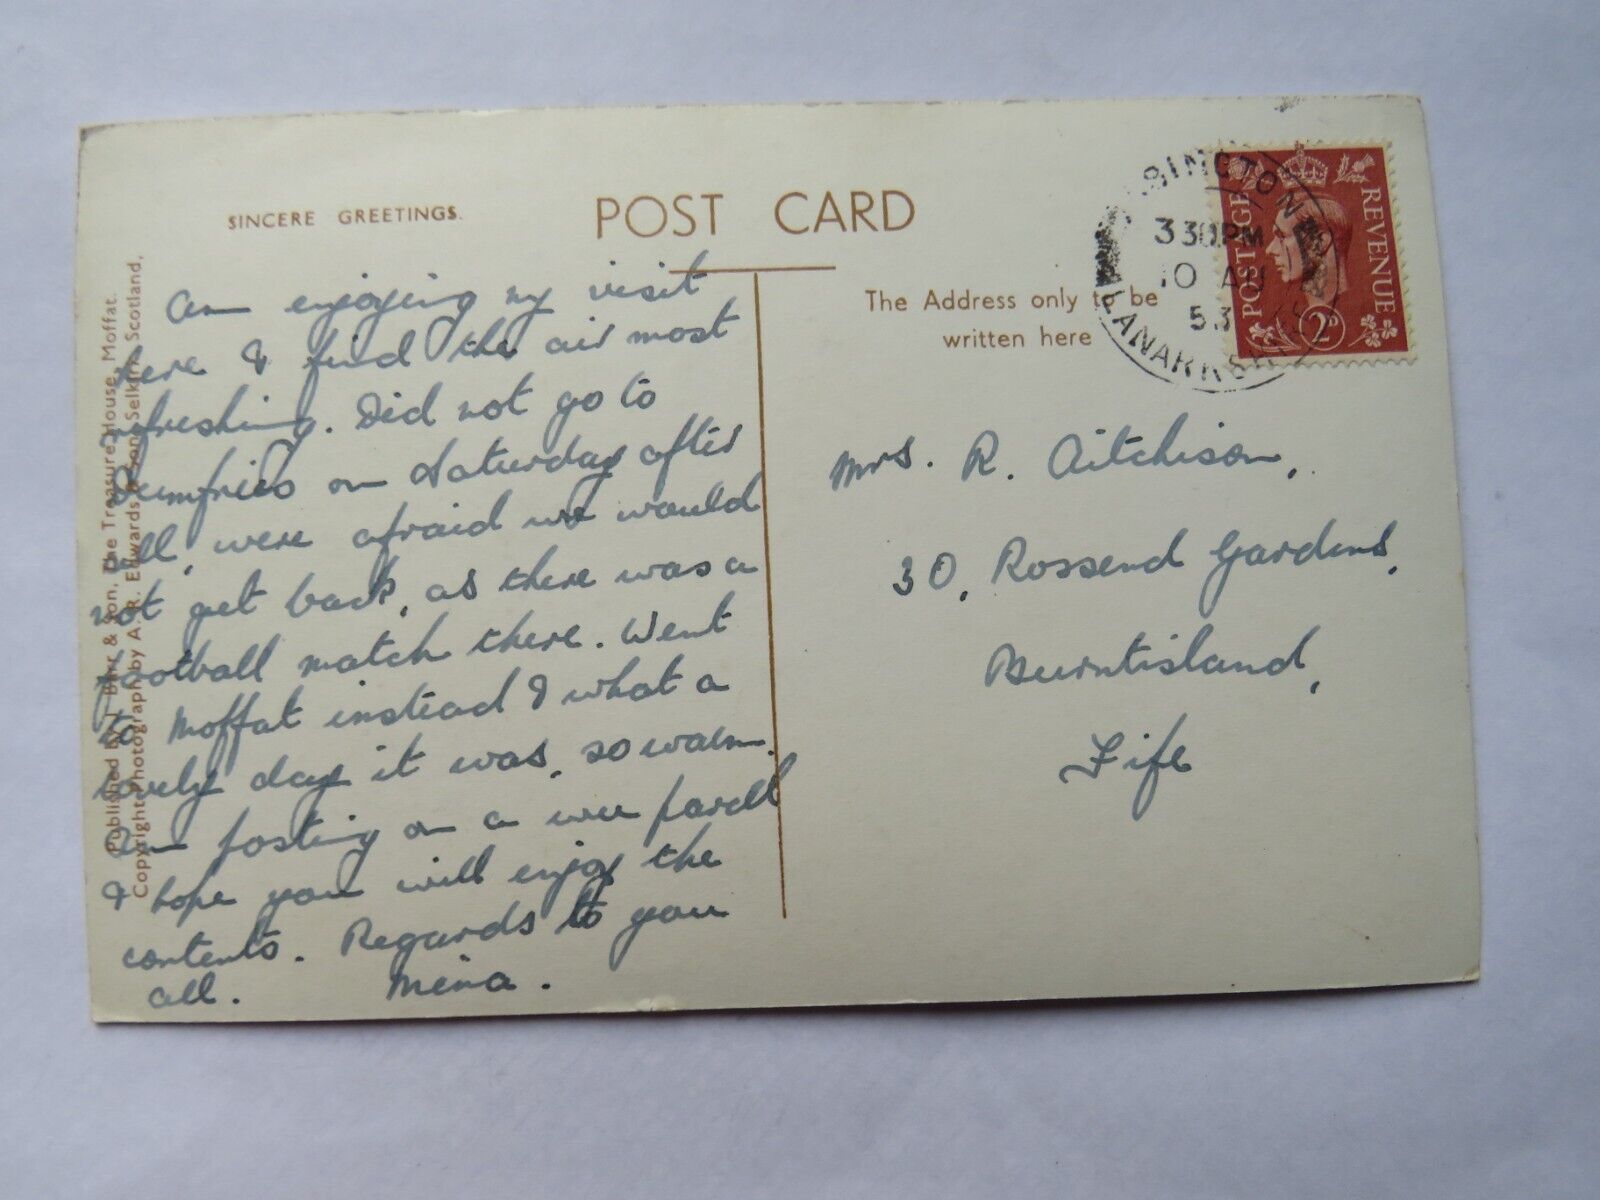 SINCERE GREETINGS.
POST CARD
The Address only to be
written here
Am enjoying my visit
here & find the air most
refreshing. Did not go to
Dumfries on Saturday after
all, were afraid we would
not get back, as there was a
football match there. Went
to Moffat instead & what a
lovely day it was, so warm.
Am posting on a wee parcel
& hope you will enjoy the
contents. Regards to you
all. Mina.
Published by J. Barr & Son, The Treasure House, Moffat.
Copyright Photograph by A. R. Edwards & Son, Selkirk, Scotland,
Mrs. R. Aitchison,
30, Rossend Gardens,
Burntisland,
Fife
BINGTON
3 30PM
10 AU
53
LANARKSHIRE
POSTAGE
REVENUE
2D